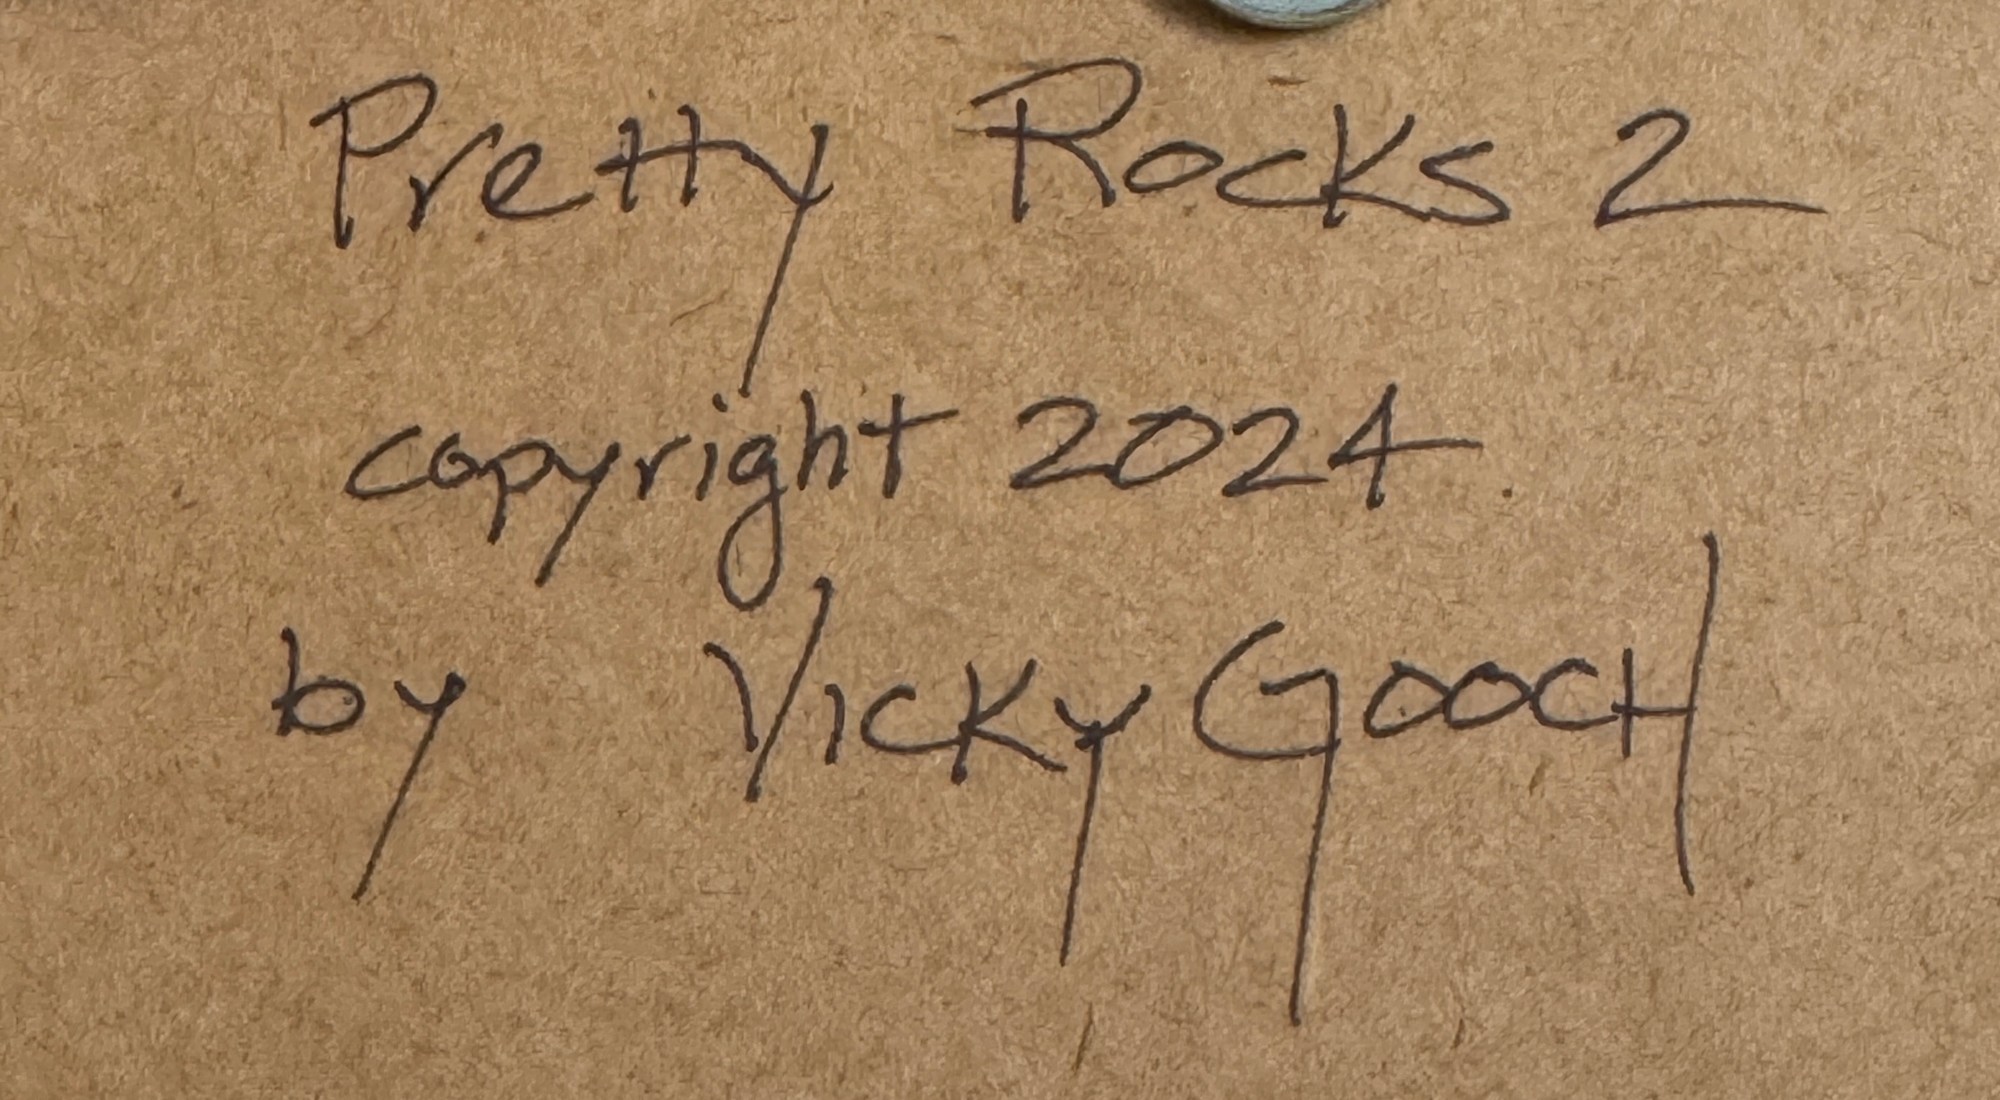 Pretty Rocks 2
copyright 2024
by Vicky Gooch